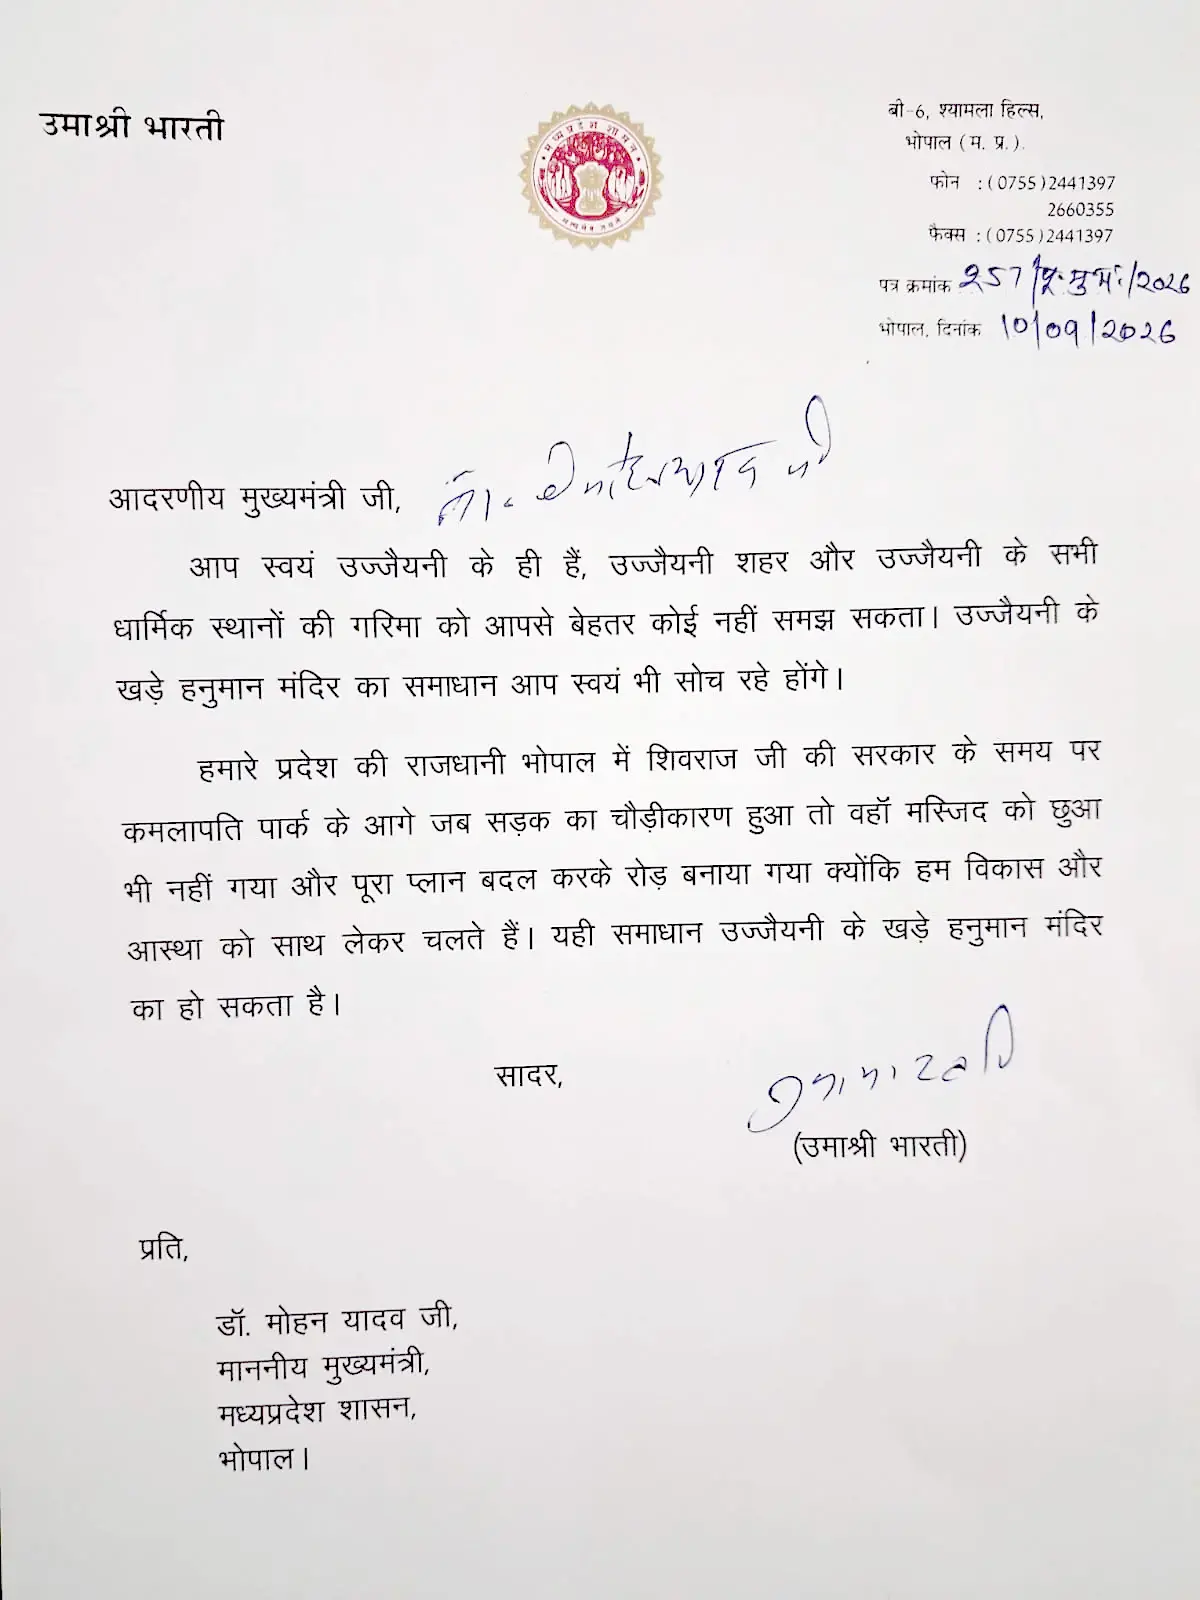 उमाश्री भारती
मध्यप्रदेश शासन
सत्यमेव जयते
बी-6, श्यामला हिल्स,
भोपाल (म. प्र.).
फोन : (0755)2441397
2660355
फैक्स : (0755)2441397
पत्र क्रमांक 257/पू.मु.मं./2026
भोपाल, दिनांक 10/09/2026
आदरणीय मुख्यमंत्री जी,
आप स्वयं उज्जैयनी के ही हैं, उज्जैयनी शहर और उज्जैयनी के सभी
धार्मिक स्थानों की गरिमा को आपसे बेहतर कोई नहीं समझ सकता। उज्जैयनी के
खड़े हनुमान मंदिर का समाधान आप स्वयं भी सोच रहे होंगे।
हमारे प्रदेश की राजधानी भोपाल में शिवराज जी की सरकार के समय पर
कमलापति पार्क के आगे जब सड़क का चौड़ीकारण हुआ तो वहॉ मस्जिद को छुआ
भी नहीं गया और पूरा प्लान बदल करके रोड़ बनाया गया क्योंकि हम विकास और
आस्था को साथ लेकर चलते हैं। यही समाधान उज्जैयनी के खड़े हनुमान मंदिर
का हो सकता है।
सादर,
(उमाश्री भारती)
प्रति,
डॉ. मोहन यादव जी,
माननीय मुख्यमंत्री,
मध्यप्रदेश शासन,
भोपाल।